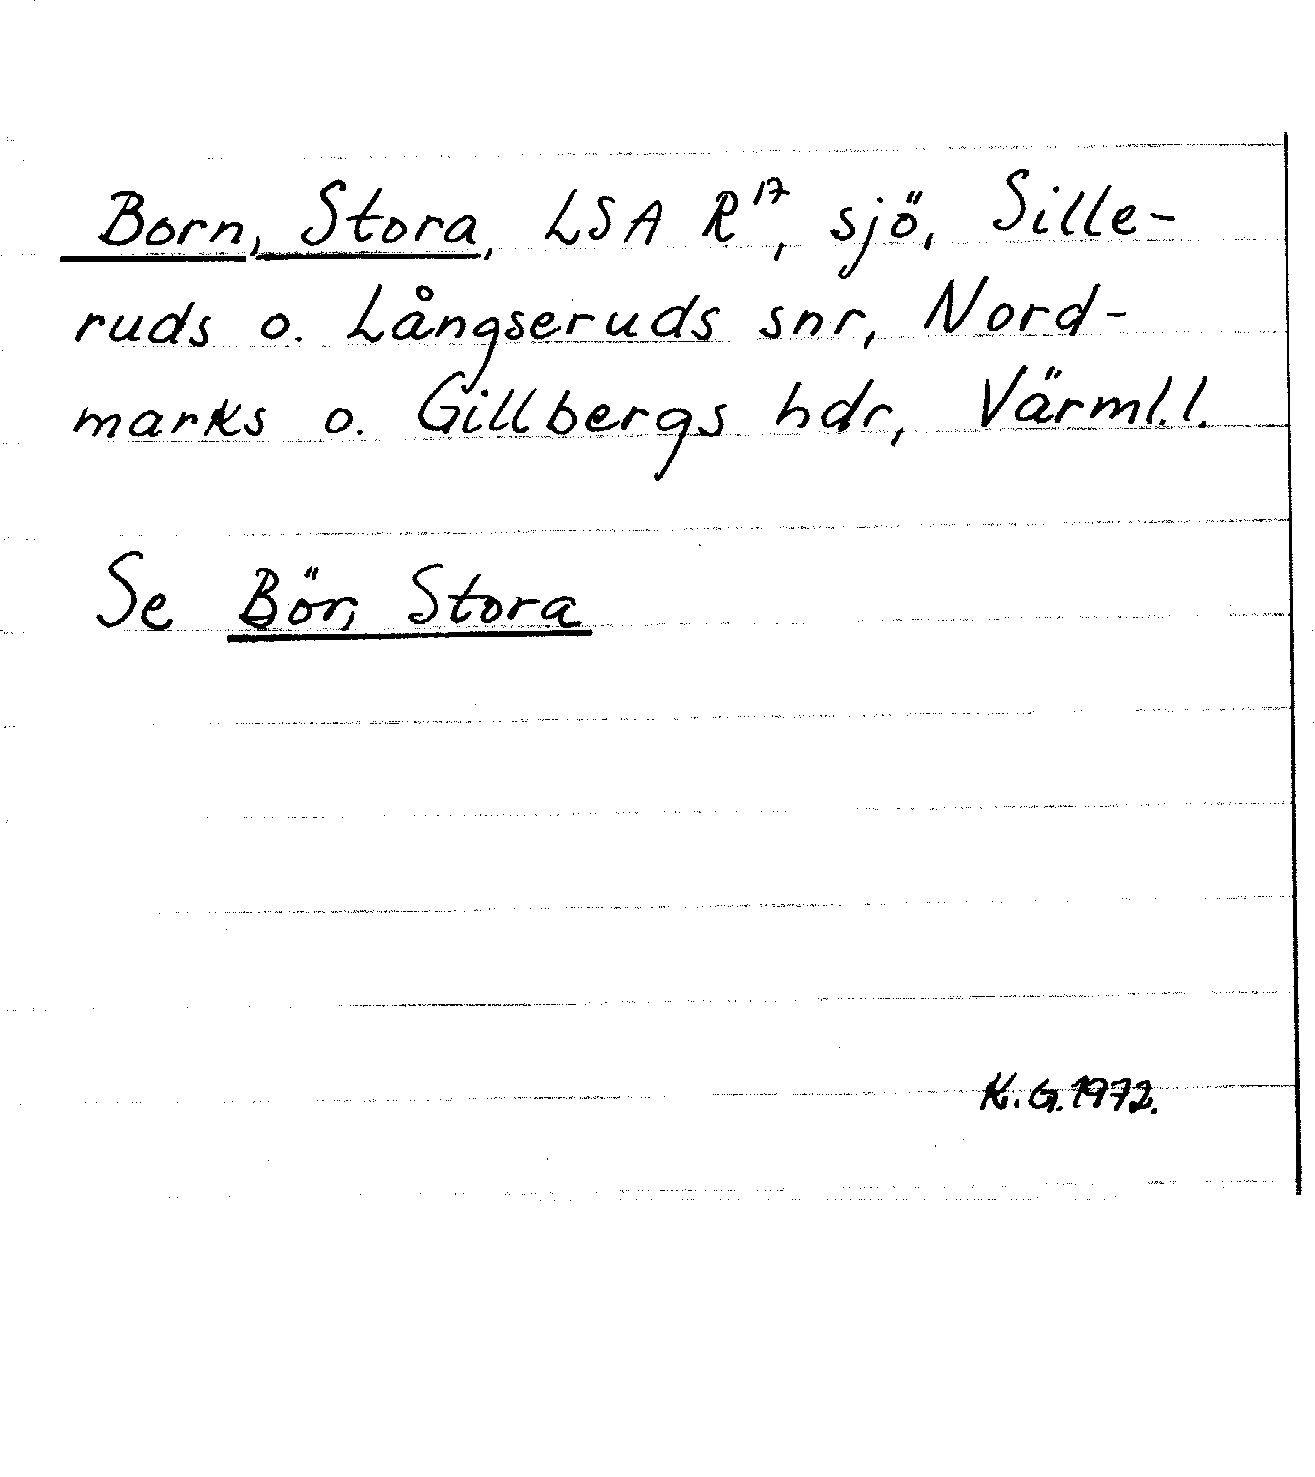 Born, Stora, LSA R17, sjö, Sille-
ruds o. Långseruds snr, Nord-
marks o. Gillbergs hdr, Värml.l.
Se Bör, Stora
K.G.1972.